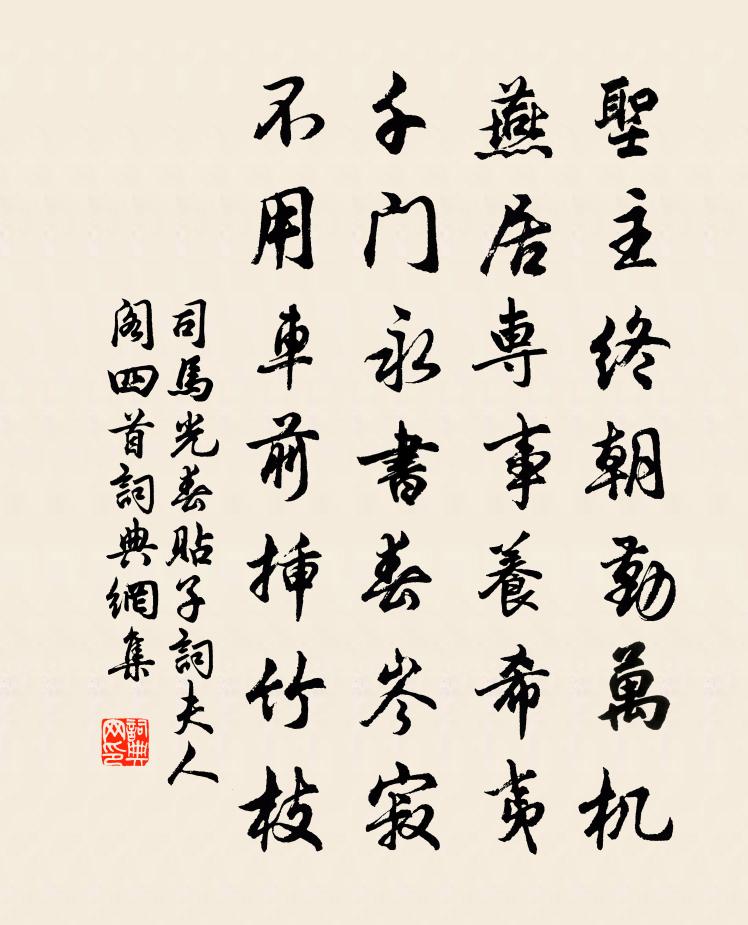 聖主終朝勤萬机
燕居専事養希夷
千門永書春岑寂
不用車前挿竹枝
司馬光春貼子詞夫人
閣四首詞典網集
詞典網印